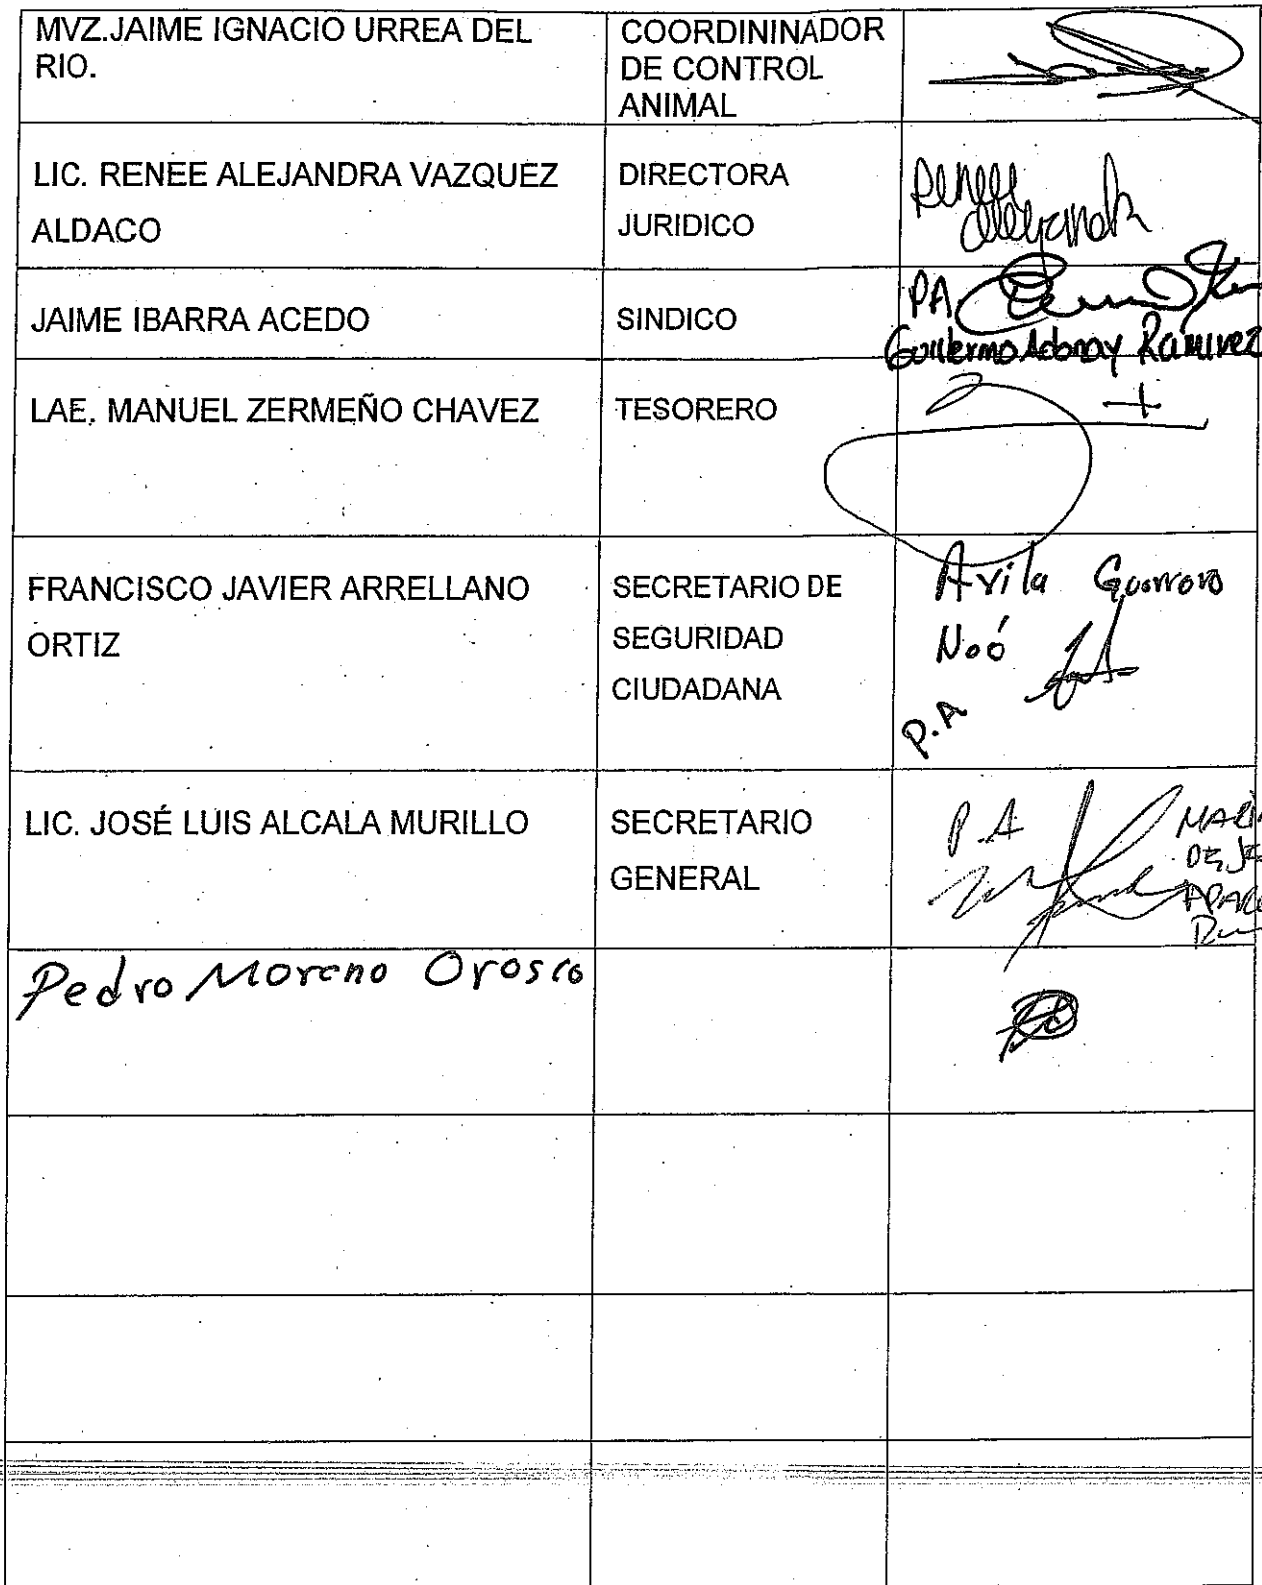 MVZ.JAIME IGNACIO URREA DEL
RIO.
COORDININADOR
DE CONTROL
ANIMAL
LIC. RENEE ALEJANDRA VAZQUEZ
ALDACO
DIRECTORA
JURIDICO
Renee
Alejandra
JAIME IBARRA ACEDO
SINDICO
PA
Guillermo Adonay Ramirez
LAE. MANUEL ZERMEÑO CHAVEZ
TESORERO
FRANCISCO JAVIER ARRELLANO
ORTIZ
SECRETARIO DE
SEGURIDAD
CIUDADANA
Avila Guerrero
Noé
P.A
LIC. JOSÉ LUIS ALCALA MURILLO
SECRETARIO
GENERAL
P.A
DE JE
Pedro Moreno Orosco